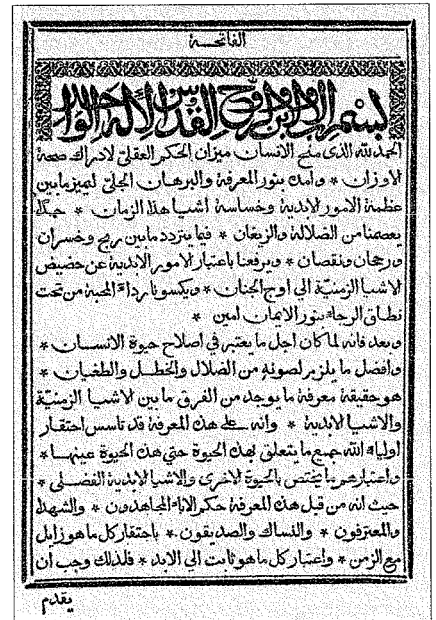 الفاتحـــة
بسم الاب والابن والروح القدس الاله الواحد
الحمد لله الذي منح الانسان ميزان الحكم العقلي لادراك صحة
الاوزان * وامده بنور المعرفة والبرهان الجلي ليميز ما بين
عظمة الامور الابدية وخساسة اشيا هذا الزمان * حكمًا
يعصمنا من الضلالة والزيغان * فيما يتردد ما بين ربح وخسران
ورجحان ونقصان * ويرفعنا باعتبار الامور الابدية عن حضيض
الاشيا الزمنيّة الي اوج الجنان * ويكسونا رداءَ المحبة من تحت
نطاق الرجاءِ بنور الايمان امين *
وبعد فانه لما كان اجل ما يعتبر في اصلاح حيوة الانســـان *
وافضل ما يلزم لصونهِ من الضلال والخطـــل والطغيـان *
هو حقيقة معرفة ما يوجد من الفرق ما بين الاشيـا الزمنيّة
والاشيــا الابدية * وانه علي هذه المعرفة قد تاسس احتقار
اولياءِ الله جميع ما يتعلق بهذه الحيوة حتي هذه الحيوة عينهــا *
واعتبارهم ما يختص بالحيوة الاخري والاشيا الابدية الفضلـــي *
حيث انه من قبل هذه المعرفة حكم الاباءُ المجاهدون * والشهدا
والمعترفون * والنساك والصديقون * باحتقار كل ما هو زايل
مع الزمن * واعتبار كل ما هو ثابت الي الابد * فلذلك وجب ان
يقدم